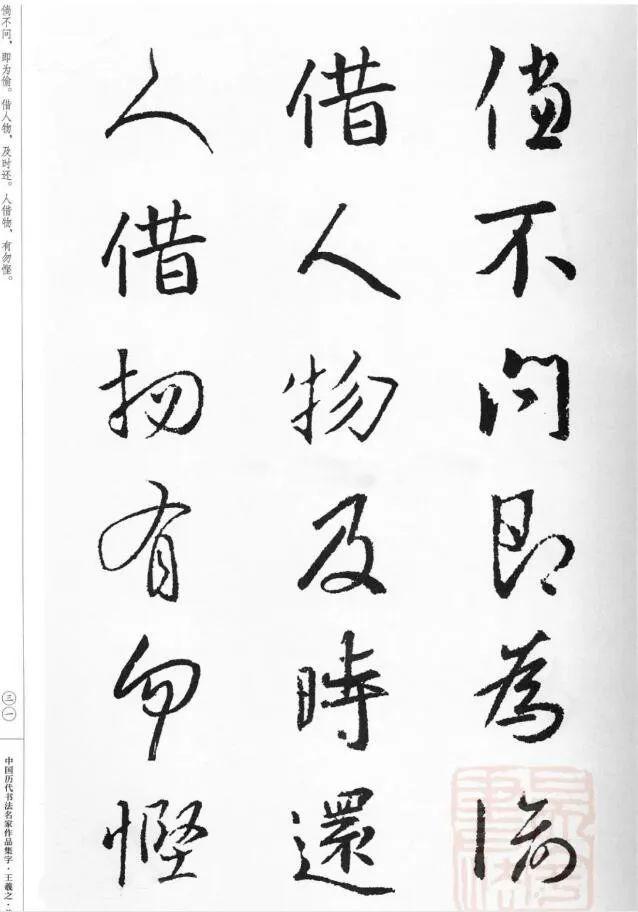 儻不问即為偷
借人物及時還
人借物有勿慳
倘不问，即为偷。借人物，及时还。人借物，有勿悭。
三一
中国历代书法名家作品集字·王羲之·